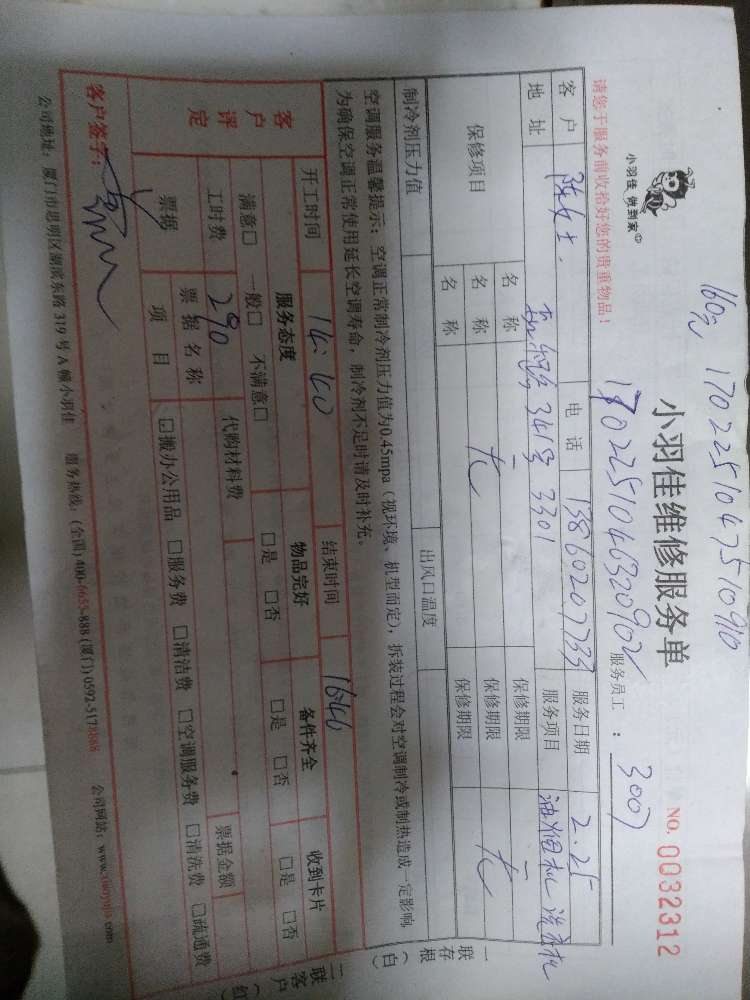 160元 1702251047510910
小羽佳 做到家
小羽佳维修服务单
NO. 0032312
170225104632090
请您于服务前收拾好您的贵重物品!
服务员工 : 3007
客户 陈女士 电话 13860207733 服务日期 2.25
地址 341号 3301 服务项目 油烟机 洗衣机
保修项目 名称 保修期限
名称 无 保修期限 无
名称 保修期限
制冷剂压力值 出风口温度
空调服务温馨提示:空调正常制冷剂压力值为0.45mpa(视环境、机型而定),拆装过程会对空调制冷或制热造成一定影响
为确保空调正常使用延长空调寿命,制冷剂不足时请及时补充。
开工时间 14:40 结束时间 16:40
客户评定 服务态度 物品完好 备件齐全 收到卡片
满意□ 一般□ 不满意□ □是 □否 □是 □否 □是 □否
工时费 290 代购材料费 票据金额
票据 票据名称
项目 ☑搬办公用品 □服务费 □清洁费 □空调服务费 □清洗费 □疏通费
客户签字:
公司地址:厦门市思明区湖滨东路 319 号 A 幢小羽佳 服务热线:(全国)400-0655-888 (厦门)0592-5178888 公司网站:www.xiaoyujia.com
一联存根(白)
二联客户(红